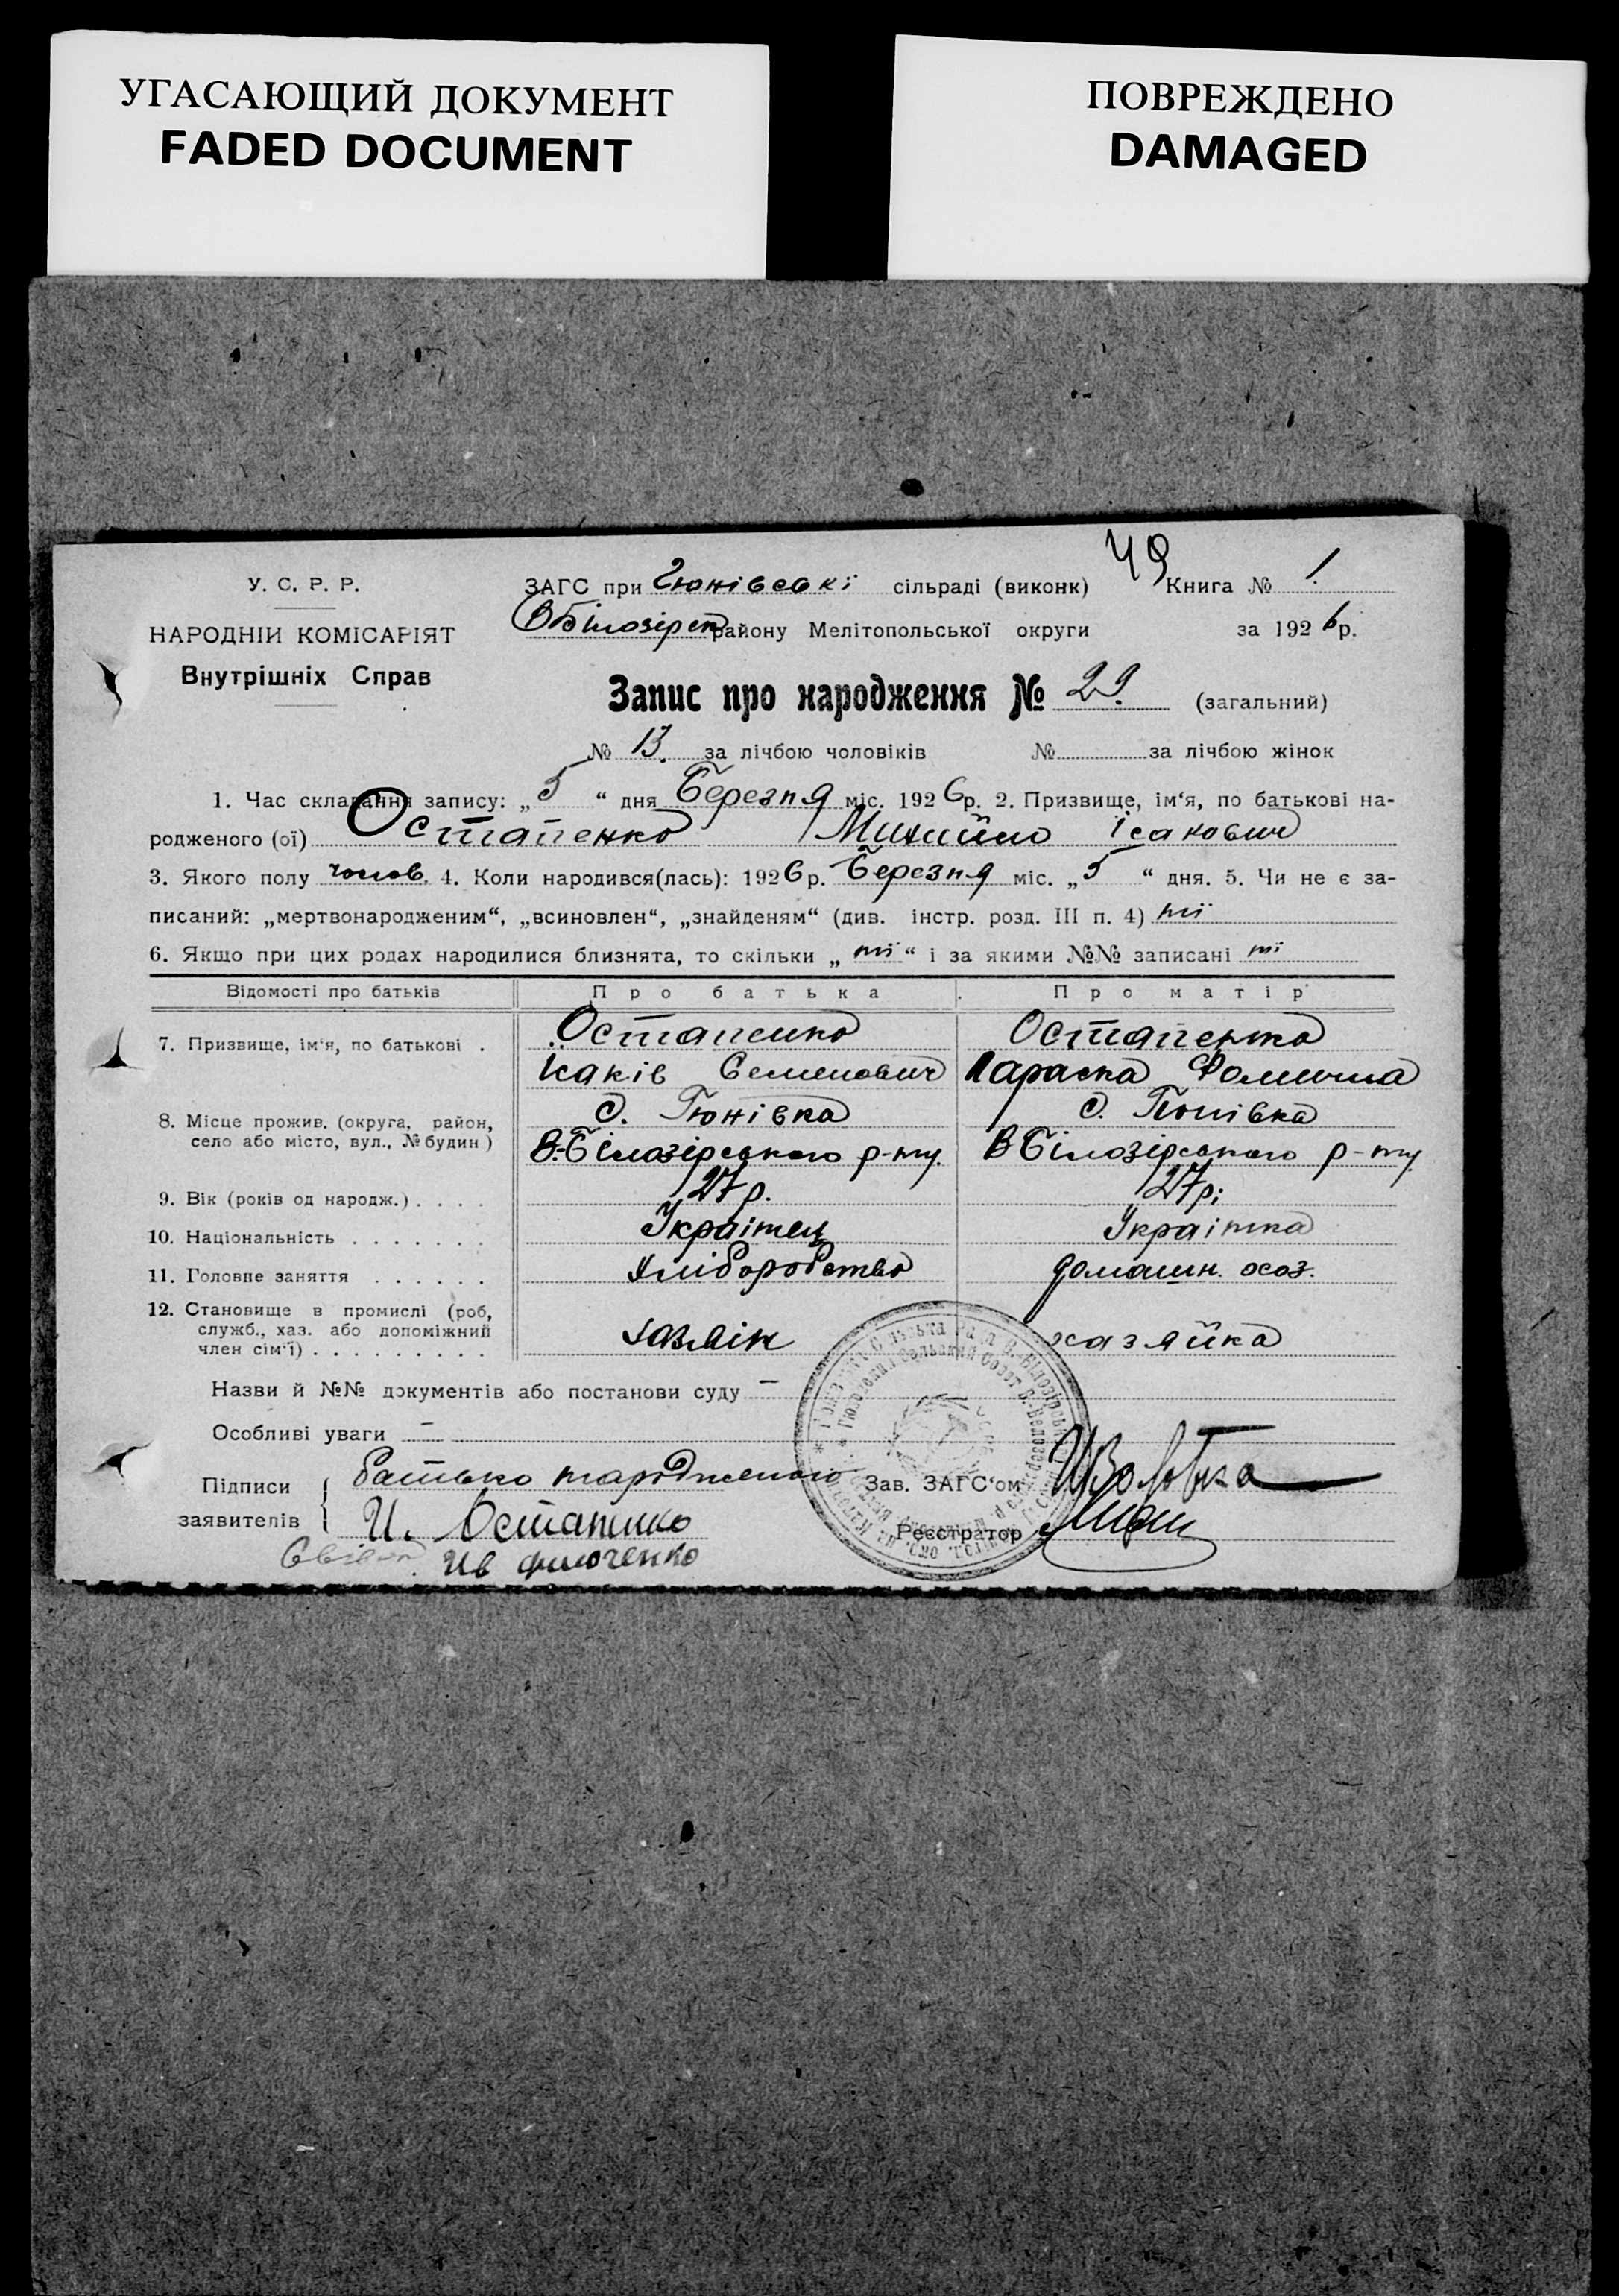 УГАСАЮЩИЙ ДОКУМЕНТ
FADED DOCUMENT
ПОВРЕЖДЕНО
DAMAGED
49
У. С. Р. Р.
НАРОДНІЙ КОМІСАРІЯТ
Внутрішніх Справ
ЗАГС при Гюнівські сільраді (виконк) Книга № 1
ВБілозірск району Мелітопольської округи за 1926 р.
Запис про народження № 29. (загальний)
№ 13. за лічбою чоловіків № за лічбою жінок
1. Час складання запису: „5“ дня Березня міс. 1926 р. 2. Призвище, ім‘я, по батькові на-
родженого (ої) Остапенко Михайло Ісакович
3. Якого полу чолов. 4. Коли народився(лась): 1926 р. Березня міс. „5“ дня. 5. Чи не є за-
писаний: „мертвонародженим“, „всиновлен“, „знайденям“ (див. інстр. розд. III п. 4) ні
6. Якщо при цих родах народилися близнята, то скільки „ні“ і за якими №№ записані ні
Відомості про батьків Про батька Про матір
7. Призвище, ім‘я, по батькові . Остапенко Остапенко
Ісаків Семенович Параска Фомична
8. Місце прожив. (округа, район, с. Гюнівка с. Гюнівка
село або місто, вул., № будин) В-Білозірського р-ну. ВБілозірського р-ну
9. Вік (років од народж.) . . . . 27 р. 27 р.
10. Національність . . . . . . . Українец Українка
11. Головне заняття . . . . . . Хліборобство домашн. госп.
12. Становище в промислі (роб,
служб., хаз. або допоміжний
член сім‘ї) . . . . . . . . . хазяін хазяйка
Назви й №№ документів або постанови суду —
Особливі уваги —
Підписи
заявителів
батько народженого
И. Остапенко
Ив
Зав. ЗАГС‘ом
Реєстратор